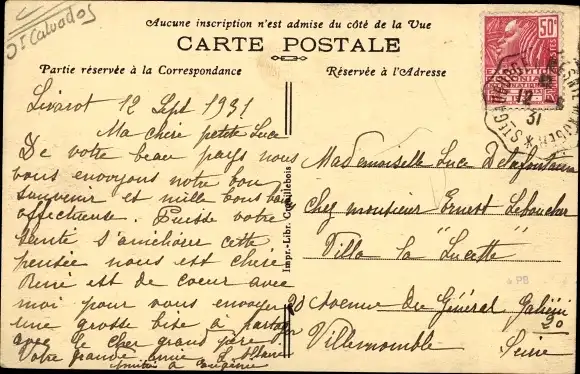 Dt Calvados
Aucune inscription n'est admise du côté de la Vue
CARTE POSTALE
Partie réservée à la Correspondance
Réservée à l'Adresse
50c
POSTES
12 - 9
31
Livarot 12 Sept 1931
Ma chère petite Luce
De votre beau pays nous
vous envoyons notre bon
souvenir et mille bons
affectueuse. Puisse votre
santé s'améliorer cette
pensée nous est chère
René est de coeur avec
moi pour vous envoyer
une grosse bise à partager
avec le cher grand père
Votre grande amie
Amitiés à
Impr.-Libr.
Mademoiselle Luce Delafontaine
chez monsieur Ernest Leboucher
Villa la "Lucette"
PB
20 Avenue du Général Galiéni
20
Villemomble
Seine